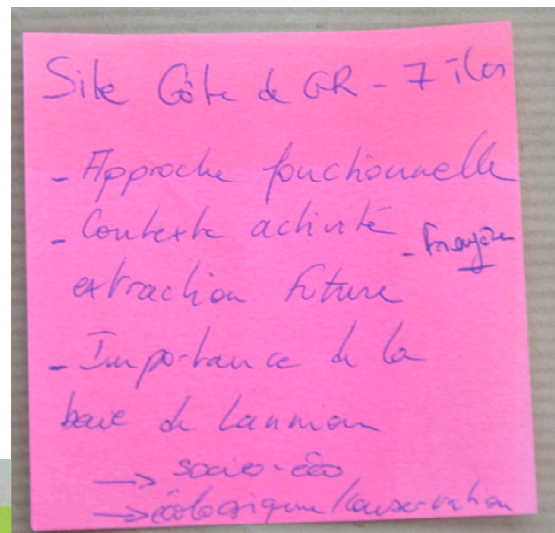 Site Côte de GR - 7 îles
- Approche fonctionnelle
- Contexte activité
extraction future
- Importance de la
baie de Lannion
→ socio-éco
→ écologique/conservation